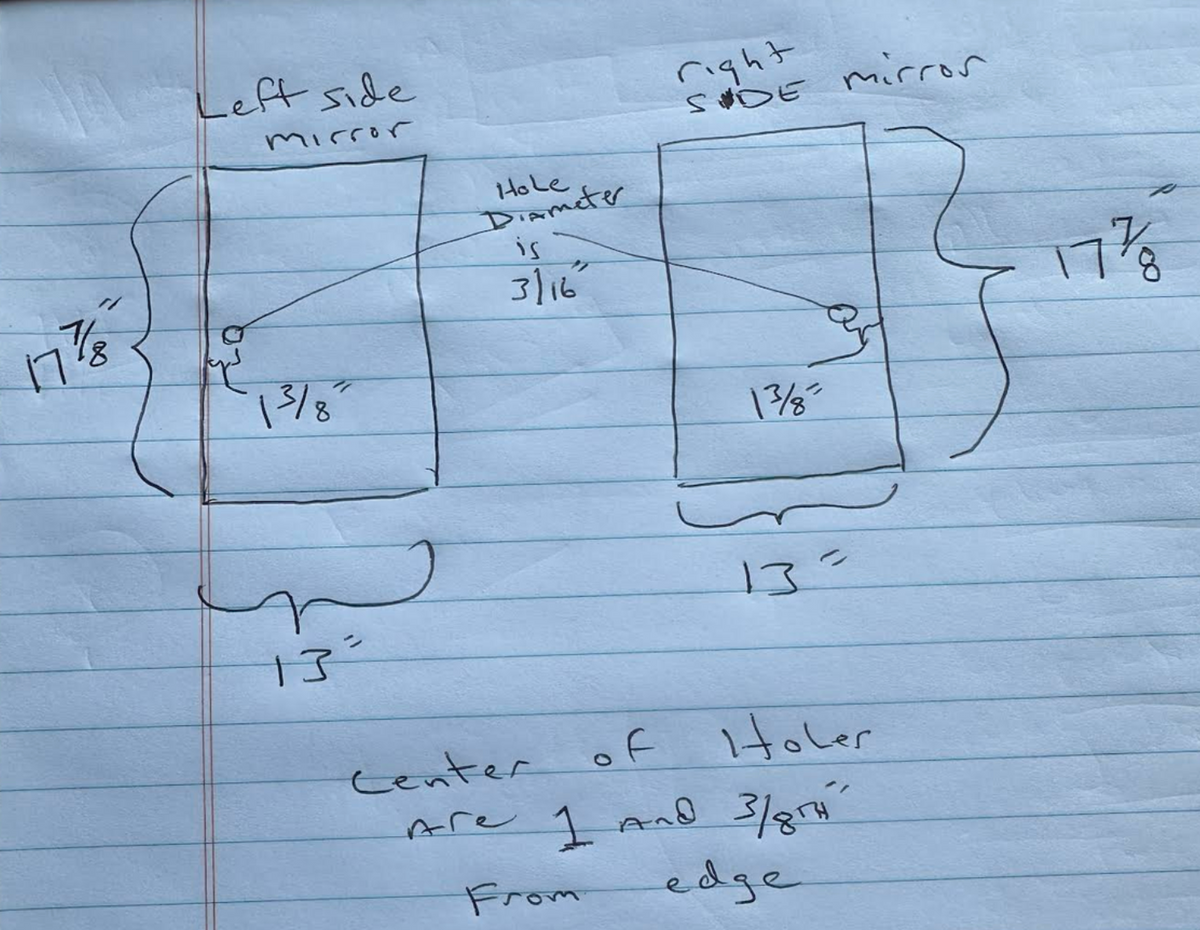 Left side
mirror
right
SIDE mirror
Hole
Diameter
is
3/16"
17 7/8"
17 7/8"
1 3/8"
1 3/8"
13"
13"
Center of Holes
Are 1 AnD 3/8TH"
From edge